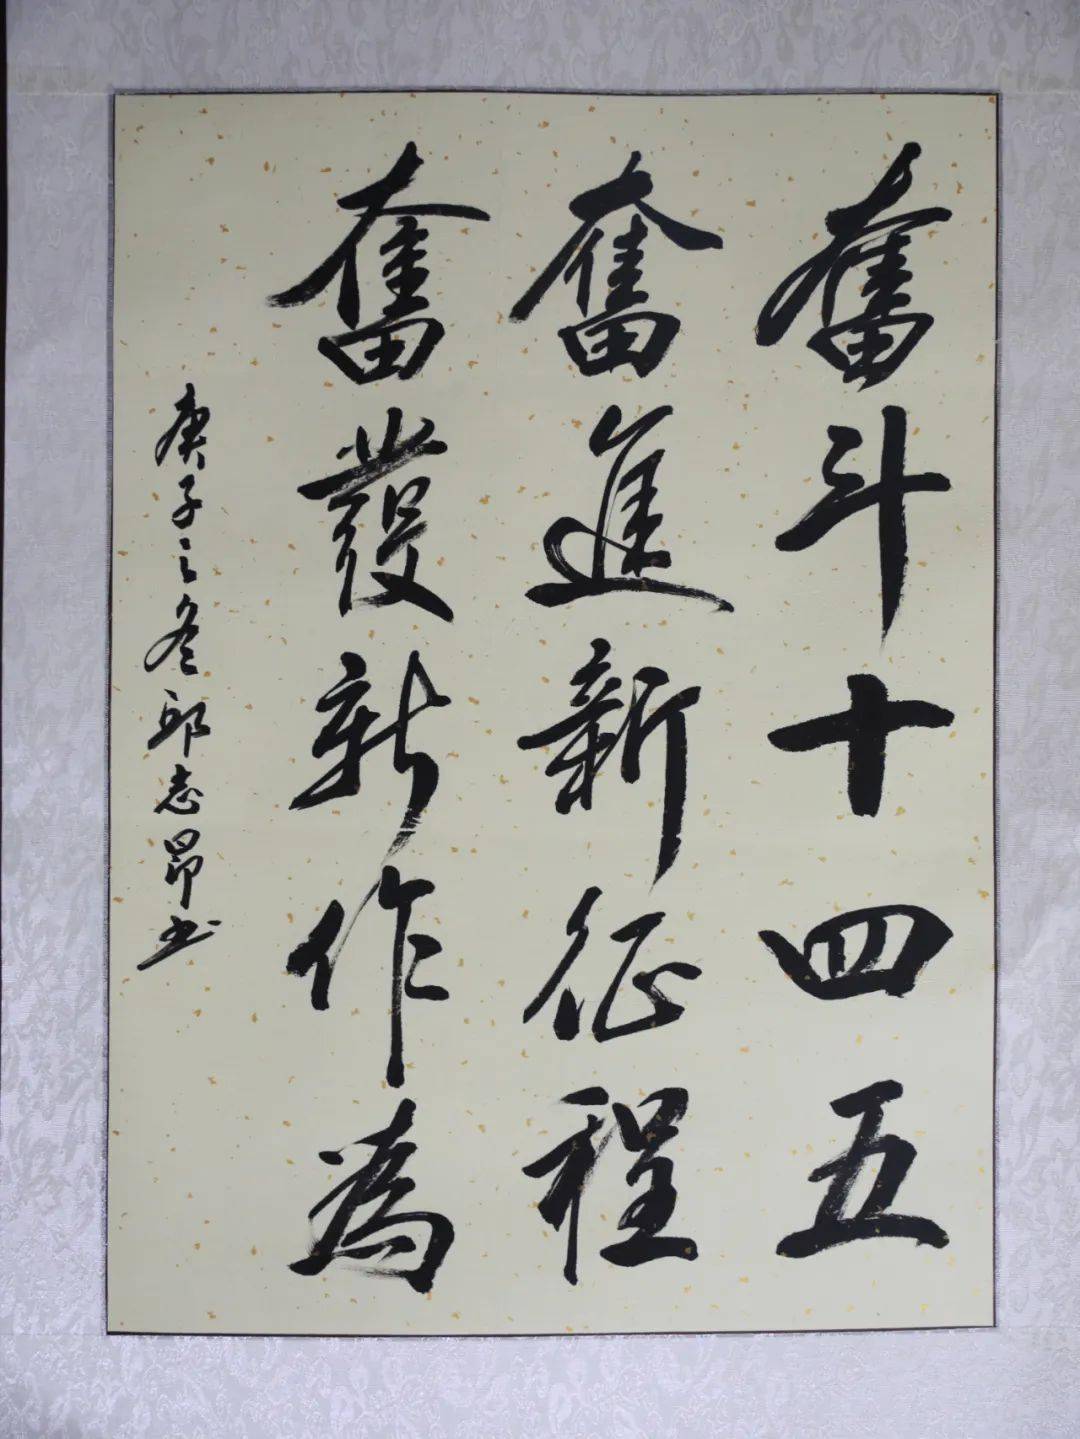 奮斗十四五
奮進新征程
奮發新作為
庚子之冬邱志昂书